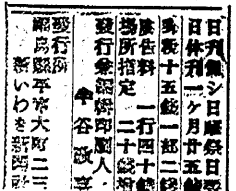 日刊無シ日曜祭日翌
日休刊一ケ月廿五錢
郵税十五錢一部二錢
廣告料 一行四十錢
場所指定 二十錢増
發行兼編輯印刷人
發行所
福島縣平市大町二三
新いわき新聞